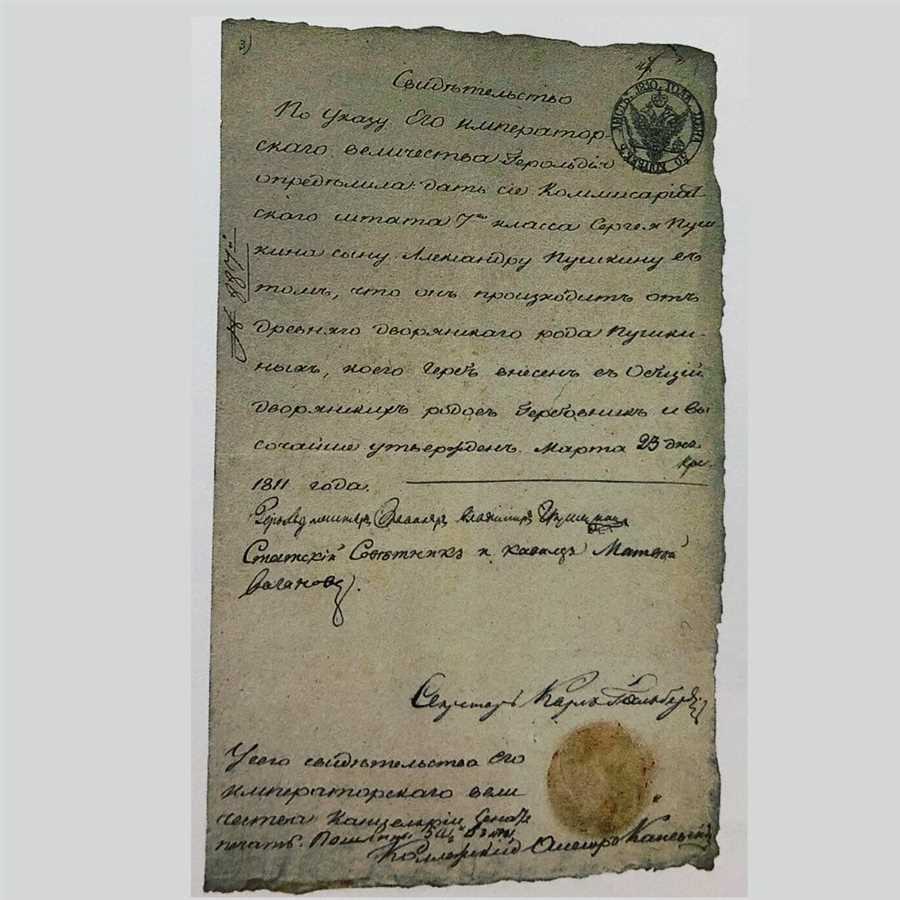 3)
Свидѣтельство
По указу Его император-
скаго величества Герольдія
опредѣлила: дать сіе Коммисаріат
скаго штата 7го класса Сергея Пуш
кина сыну Александру Пушкину въ
томъ, что онъ произходитъ отъ
древняго дворянскаго рода Пушки-
ныхъ, коего гербъ внесенъ въ Общій
дворянскихъ родовъ Гербовникъ и вы
сочайше утвержденъ. Марта 23 дня
1811 года.
ЛИСТЪ. 1810. ГОДА ЦѢНА 50 КОПѢЕКЪ
Герольдмейстеръ Кавалеръ Владимиръ
Статскій Совѣтникъ и кавалеръ Матвей
Секретарь Карлъ
У сего свидѣтельства Его
императорскаго вели
чества Канцеляріи Сената
печать. Пошлины
Коллежскій